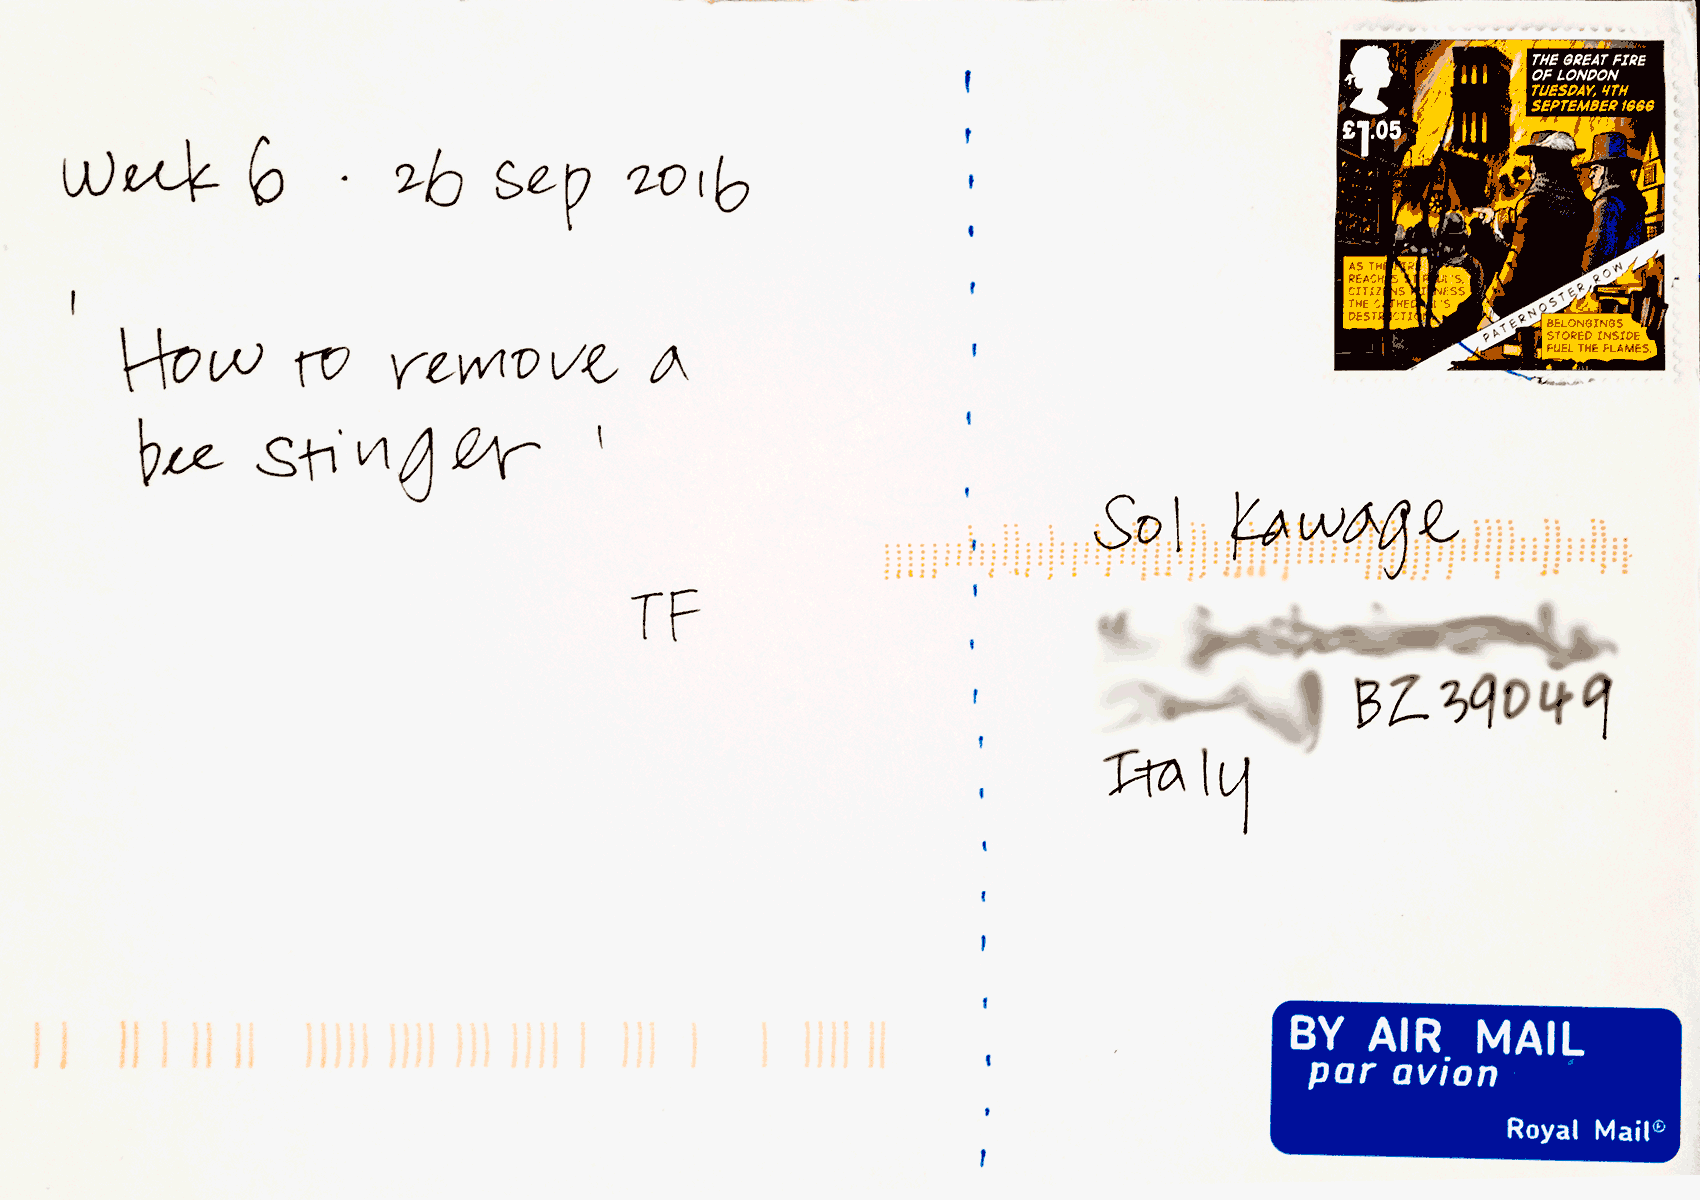 Week 6 · 26 Sep 2016
'How to remove a
bee stinger'
TF
THE GREAT FIRE
OF LONDON
TUESDAY, 4TH
SEPTEMBER 1666
£1.05
AS THE FIRE
REACHES ST PAUL'S,
CITIZENS WITNESS
THE CATHEDRAL'S
DESTRUCTION
PATERNOSTER ROW
BELONGINGS
STORED INSIDE
FUEL THE FLAMES.
Sol Kawage
BZ 39049
Italy
BY AIR MAIL
par avion
Royal Mail©